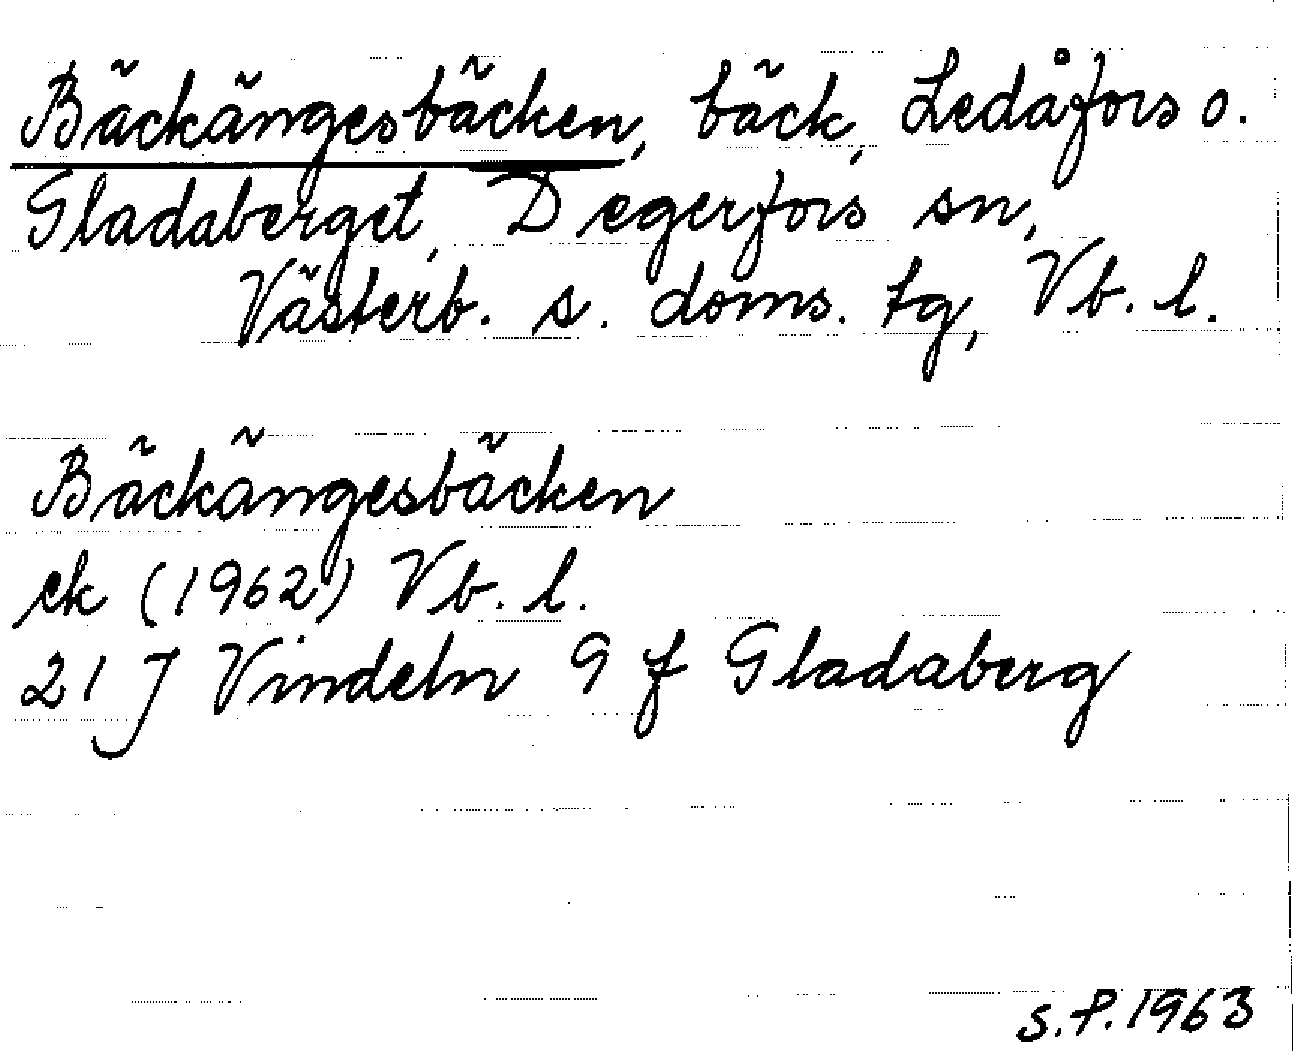 Bäckängesbäcken, bäck, Ledåfors o.
Gladaberget, Degerfors sn,
Västerb. s. doms. tg, Vb. l.
Bäckängesbäcken
ek (1962) Vb. l.
21 J Vindeln 9 f Gladaberg
S.P. 1963